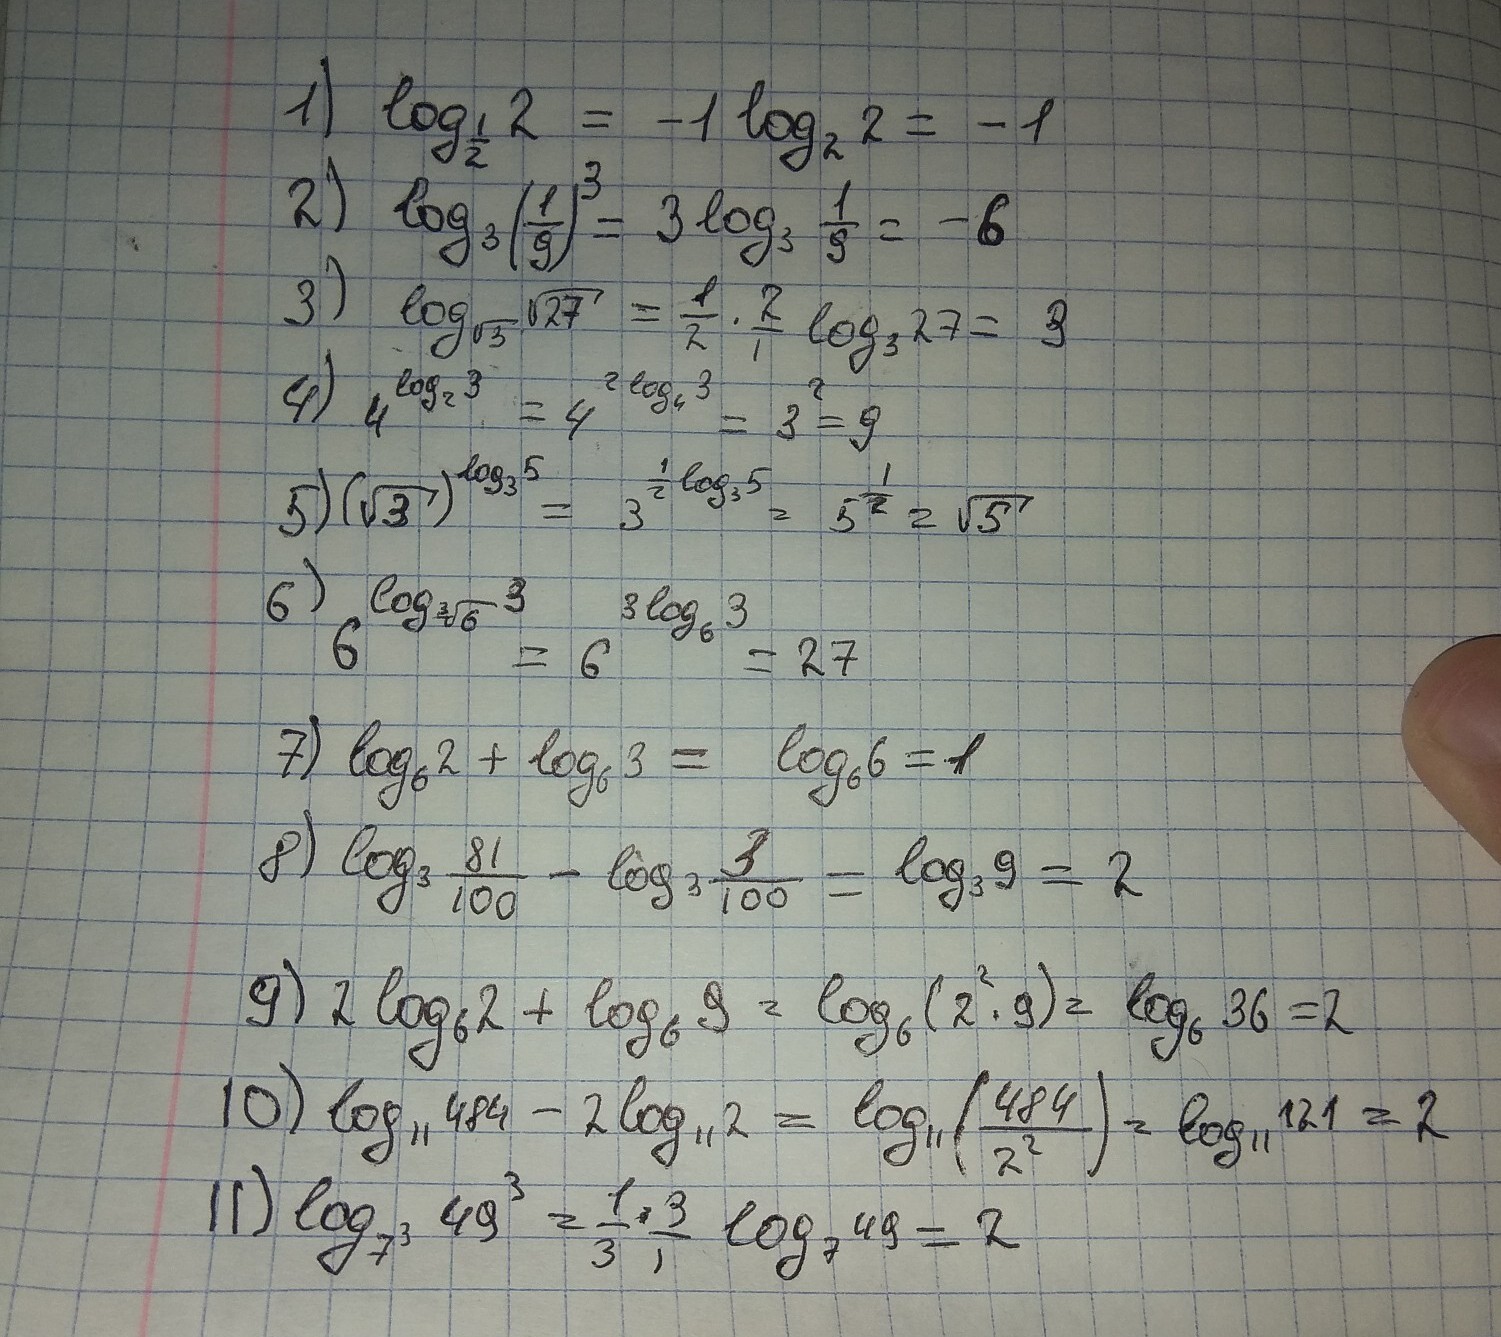 1) log_{1/2} 2 = -1 log_2 2 = -1
2) log_3 (1/9)^3 = 3 log_3 1/9 = -6
3) log_{√3} √27 = 1/2 · 2/1 log_3 27 = 3
4) 4^{log_2 3} = 4^{2 log_4 3} = 3^2 = 9
5) (√3)^{log_3 5} = 3^{1/2 log_3 5} = 5^{1/2} = √5
6) 6^{log_{∛6} 3} = 6^{3 log_6 3} = 27
7) log_6 2 + log_6 3 = log_6 6 = 1
8) log_3 81/100 - log_3 3/100 = log_3 9 = 2
9) 2 log_6 2 + log_6 9 = log_6 (2^2 · 9) = log_6 36 = 2
10) log_11 484 - 2 log_11 2 = log_11 (484/2^2) = log_11 121 = 2
11) log_{7^3} 49^3 = 1/3 · 3/1 log_7 49 = 2